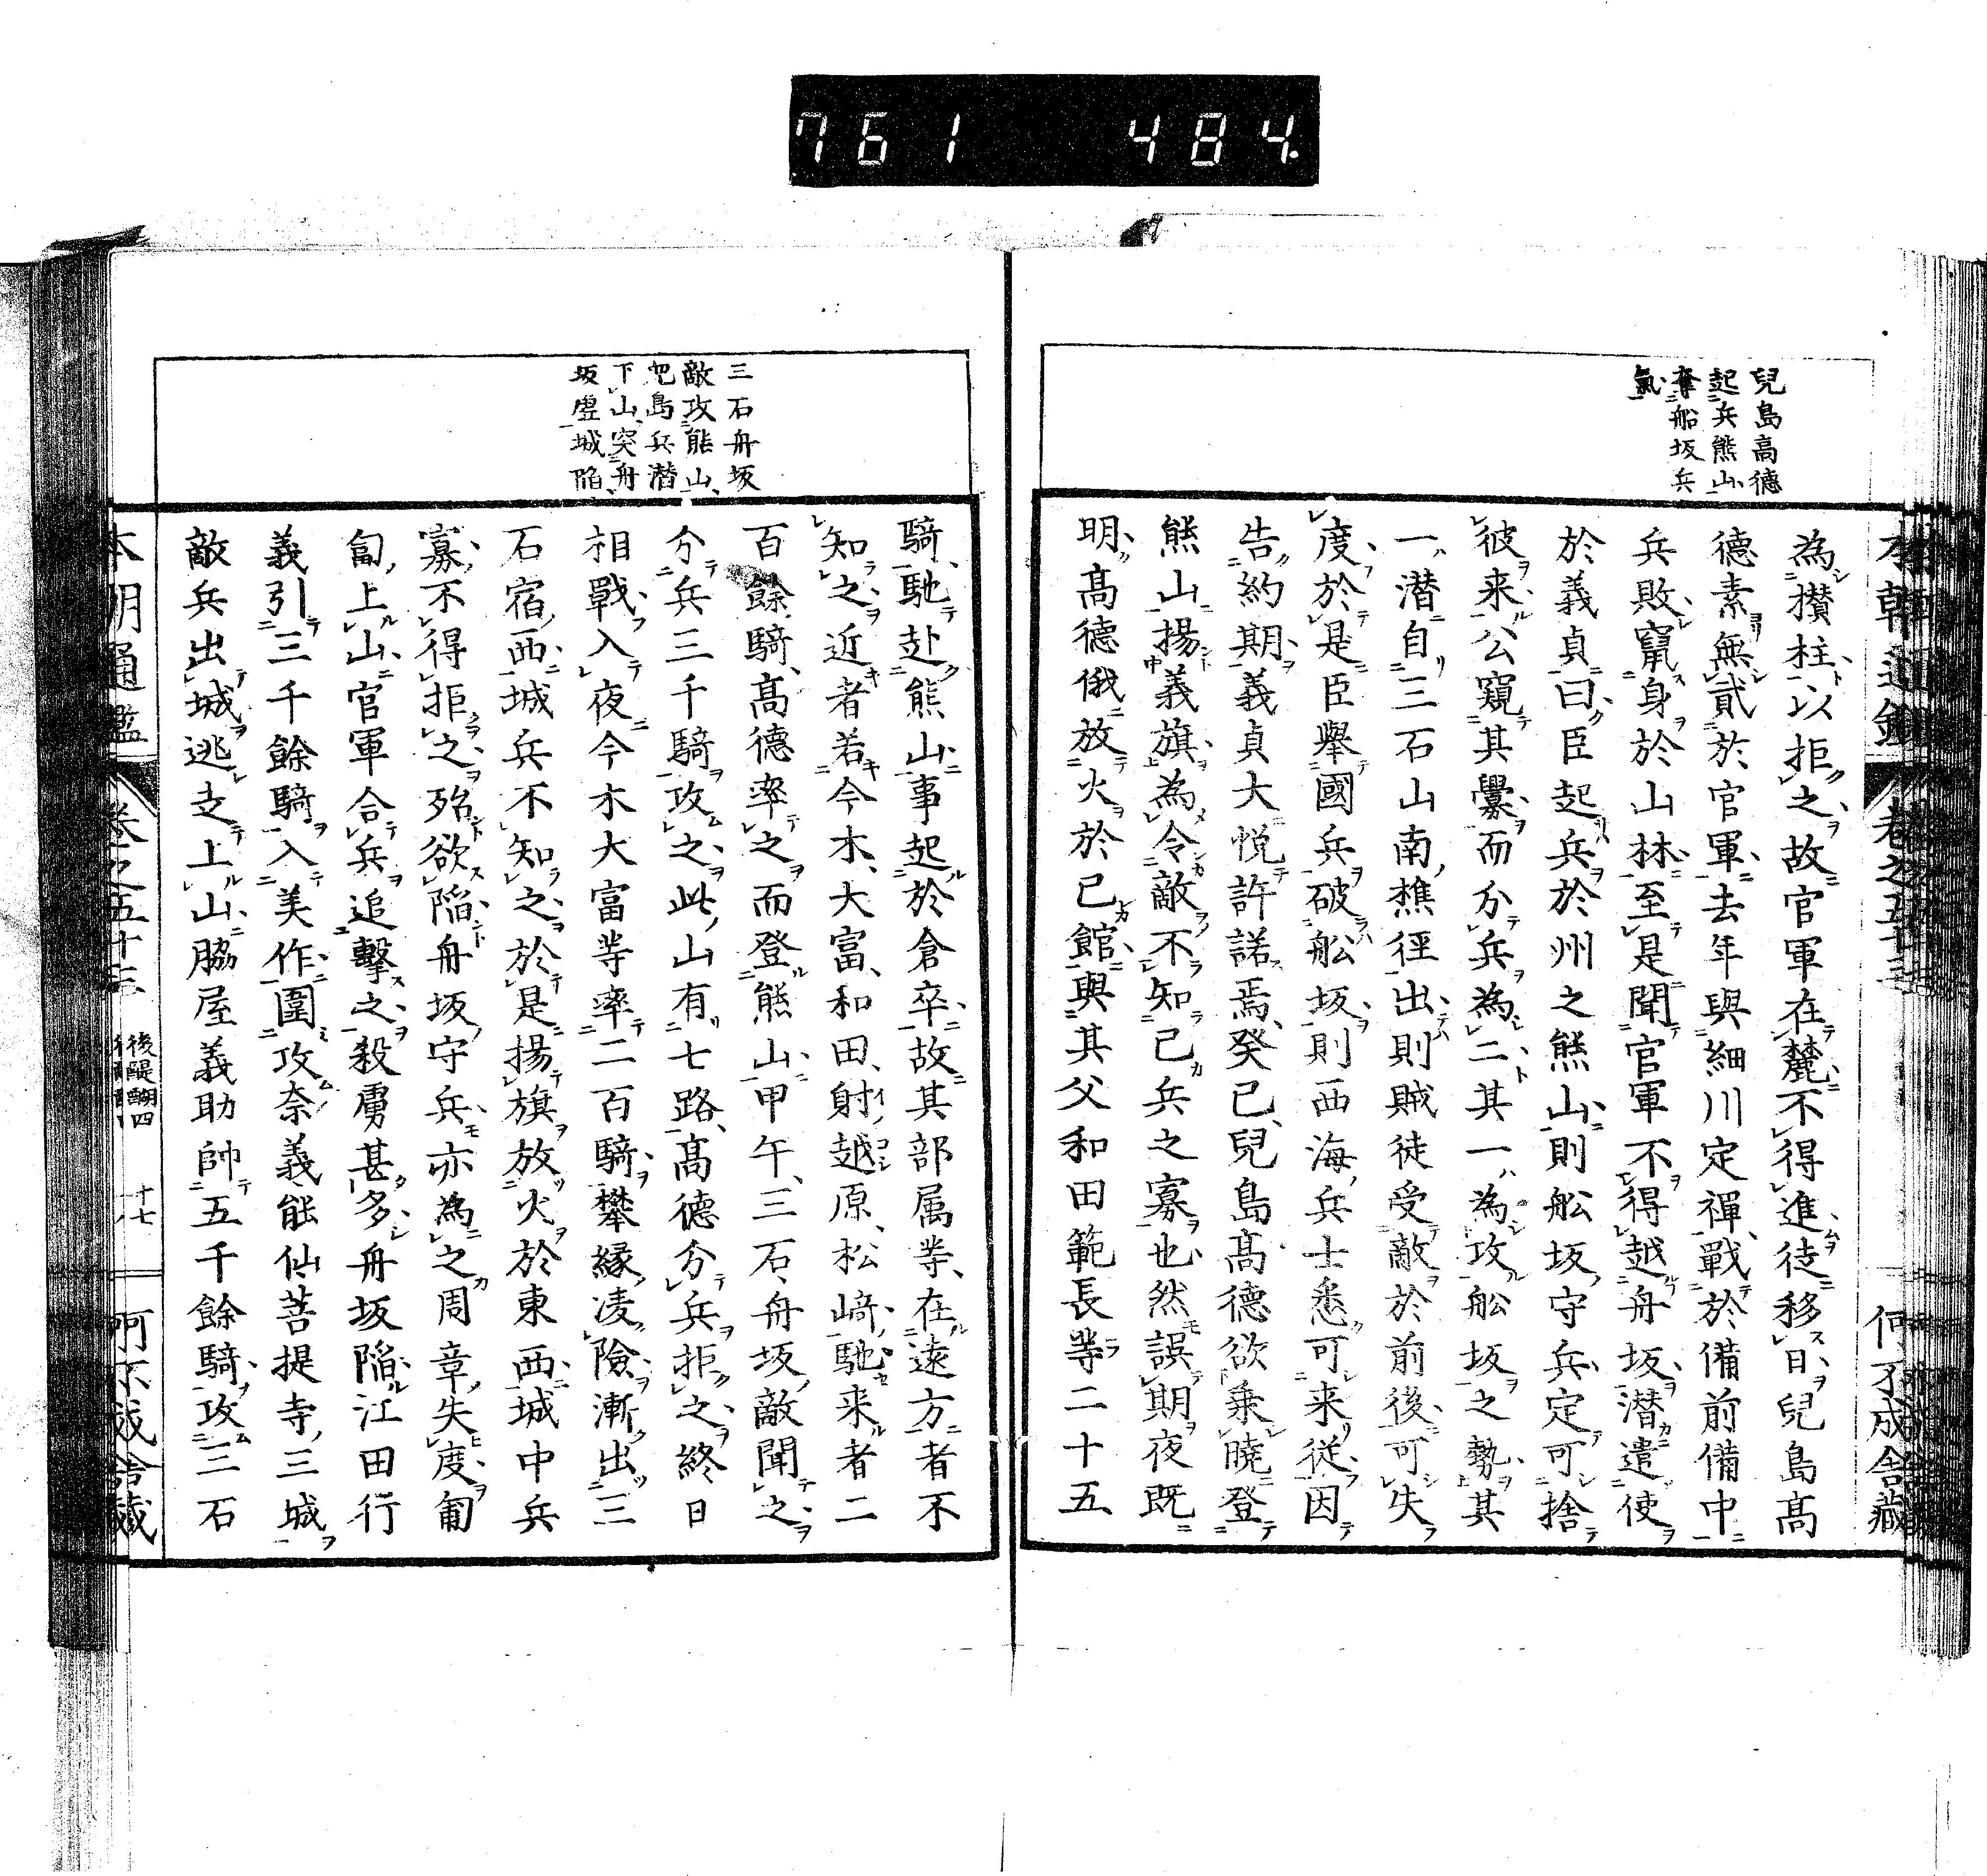 761 484.
兒島高德
起兵熊山
奪船坂兵
氣
為攅柱以拒之故官軍在麓不得進徒移日兒島髙
德素無貳於官軍去年與細川定禪戰於備前備中
兵敗竄身於山林至是聞官軍不得越舟坂潜遣使
於義貞曰臣起兵於州之熊山則舩坂守兵定可捨
彼来公窺其釁而分兵為二其一為攻舩坂之勢其
一潜自三石山南樵徑出則賊徒受敵於前後可失
度於是臣舉國兵破舩坂則西海兵士悉可来従因
告約期義貞大悦許諾焉癸已兒島髙德欲乗曉登
熊山揚義旗為令敵不知己兵之寡也然誤期夜既
明髙德俄放火於己館與其父和田範長等二十五
三石舟坂
敵攻熊山
兒島兵潜
下山突舟
坂虚城陥
騎馳赴熊山事起於倉卒故其部属等在遠方者不
知之近者若今木大富和田射越原松﨑馳来者二
百餘騎髙德率之而登熊山甲午三石舟坂敵聞之
分兵三千騎攻之此山有七路髙德分兵拒之終日
相戰入夜今木大富等率二百騎攀縁凌險漸出三
石宿西城兵不知之於是揚旗放火於東西城中兵
寡不得拒之殆欲陥舟坂守兵亦為之周章失度匍
匐上山官軍合兵追擊之殺虜甚多舟坂陥江田行
義引三千餘騎入美作圍攻奈義能仙菩提寺三城
敵兵出城逃走上山脇屋義助帥五千餘騎攻三石
本朝通鑑 卷之五十三 後醍醐四 十七